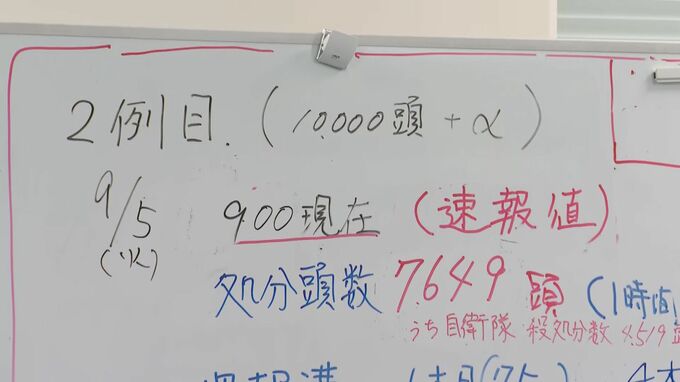 2例目.(10,000頭+α)
9/5 9:00現在(速報値)
(火)
処分頭数 7,649頭(1時
うち自衛隊 殺処分数 4,519